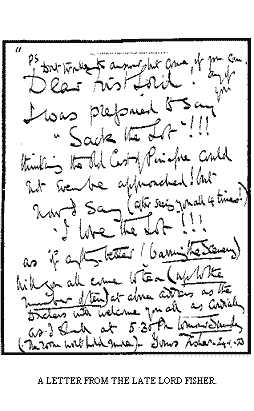 PS Don't trouble to answer but come, if you can.
Dear First Lord! any of you
I was prepared to say
"Sack the Lot"!!!
thinking the Old Cast of Pinafore could
not even be approached! but
now I say (after seeing you all 4 times!)
"I love the Lot"!!!
as if anything better! (barring the Scenery)
Will you all come to tea (up to the
number of ten) at above address as the
will welcome you all as cordially
as I shall at 5.30 PM tomorrow Sunday
(The room won't hold more) Yours Fisher
A LETTER FROM THE LATE LORD FISHER.